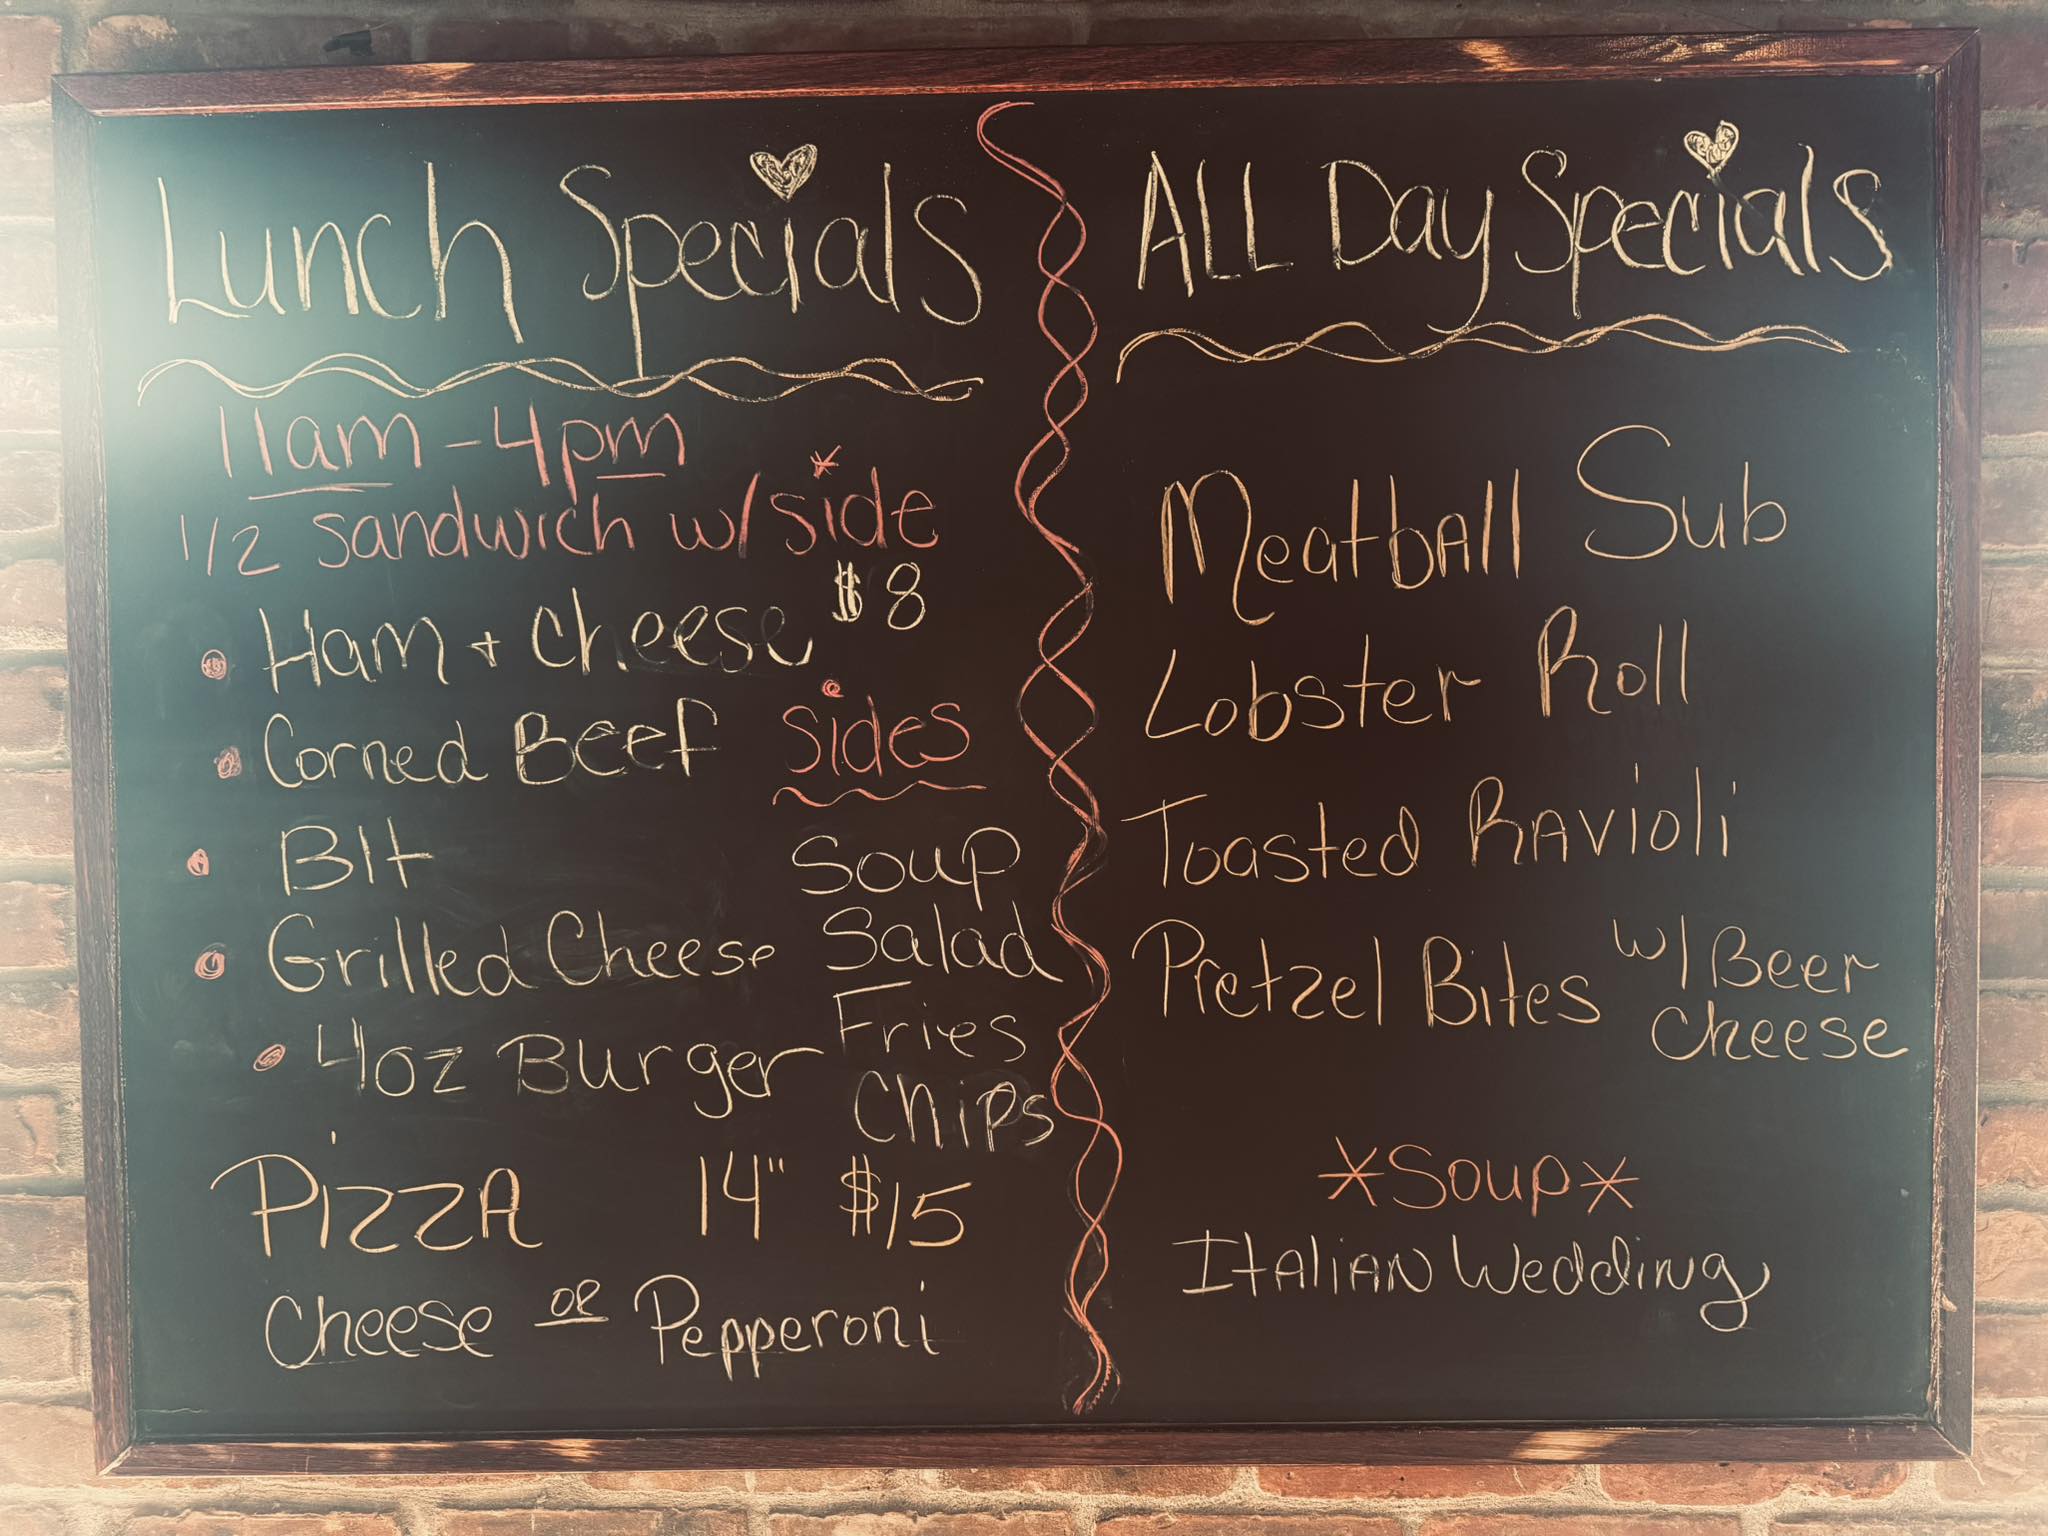 Lunch Specials
11am - 4pm
1/2 sandwich w/ side
$8
Ham + cheese
Corned Beef
Blt
Grilled Cheese
4oz Burger
Sides
Soup
Salad
Fries
Chips
Pizza 14" $15
Cheese or Pepperoni
ALL Day Specials
Meatball Sub
Lobster Roll
Toasted Ravioli
Pretzel Bites w/ Beer
cheese
*Soup*
Italian Wedding